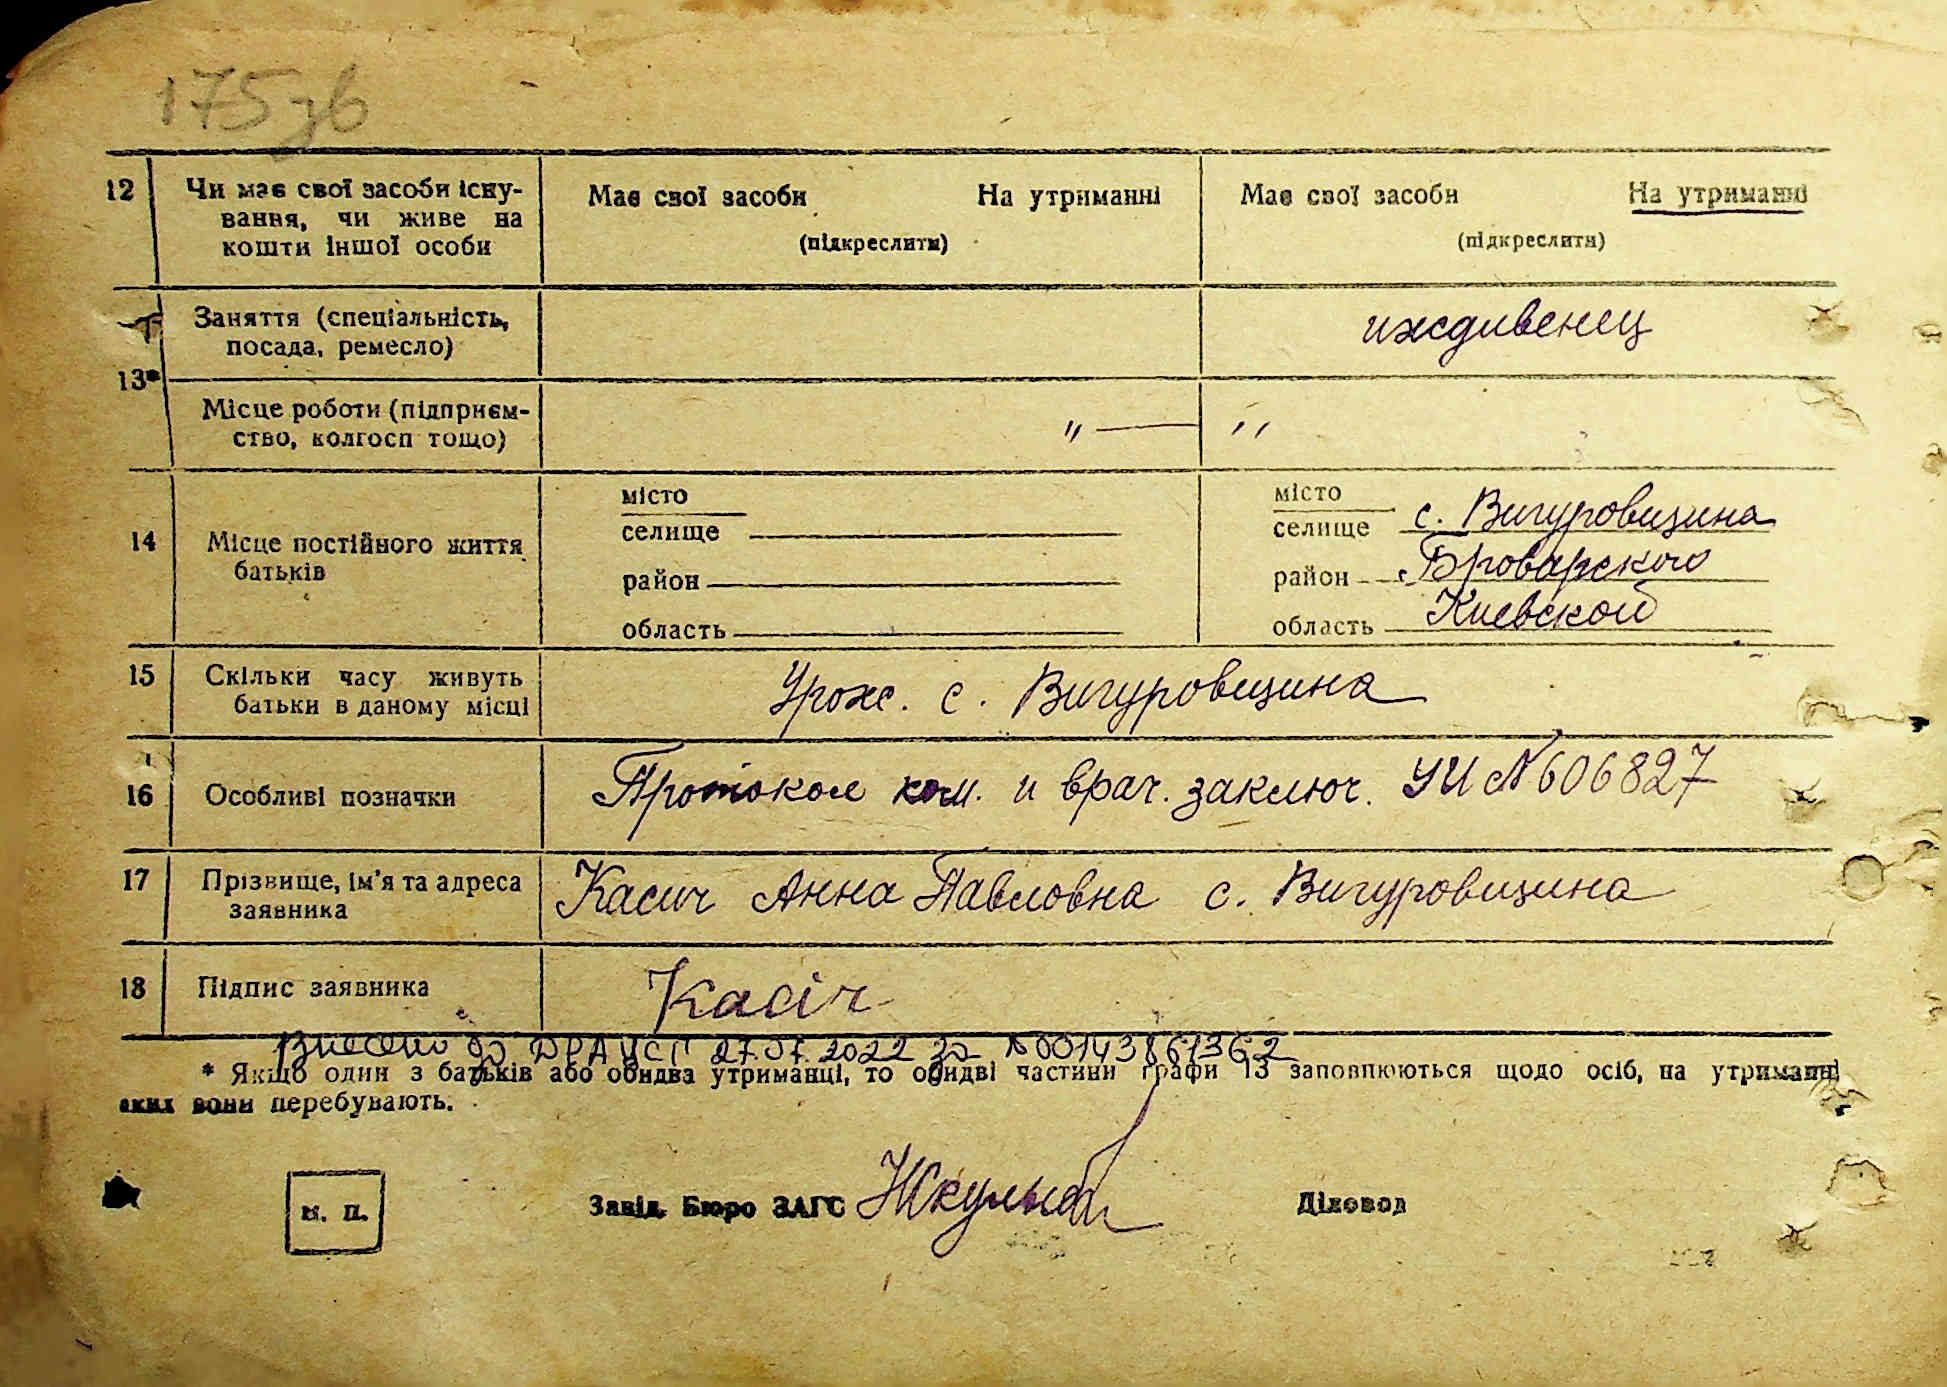 175 зв
12 Чи має свої засоби існу- Має свої засоби На утриманні Має свої засоби На утриманні
вання, чи живе на
кошти іншої особи (підкреслити) (підкреслити)
Заняття (спеціальність, иждивенец
посада, ремесло)
13*
Місце роботи (підприєм- " — "
ство, колгосп тощо)
місто місто
селище селище с. Вигуровщина
14 Місце постійного життя
батьків район район Броварского
область область Киевской
15 Скільки часу живуть Урож. с. Вигуровщина
батьки в даному місці
16 Особливі позначки Протокол ком. и врач. заключ. УИ №606827
17 Прізвище, ім'я та адреса Касич Анна Павловна с. Вигуровщина
заявника
18 Підпис заявника Касіч
Внесено до ДРАЦСГ 27.07.2022 за №00143861362
* Якщо один з батьків або обидва утриманці, то обидві частини графи 13 заповнюються щодо осіб, на утриманні
яких вони перебувають.
м. п. Завід. Бюро ЗАГС Діловод